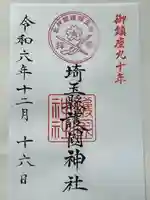 御鎮座九十年
埼玉縣護國神社
令和六年十二月十六日